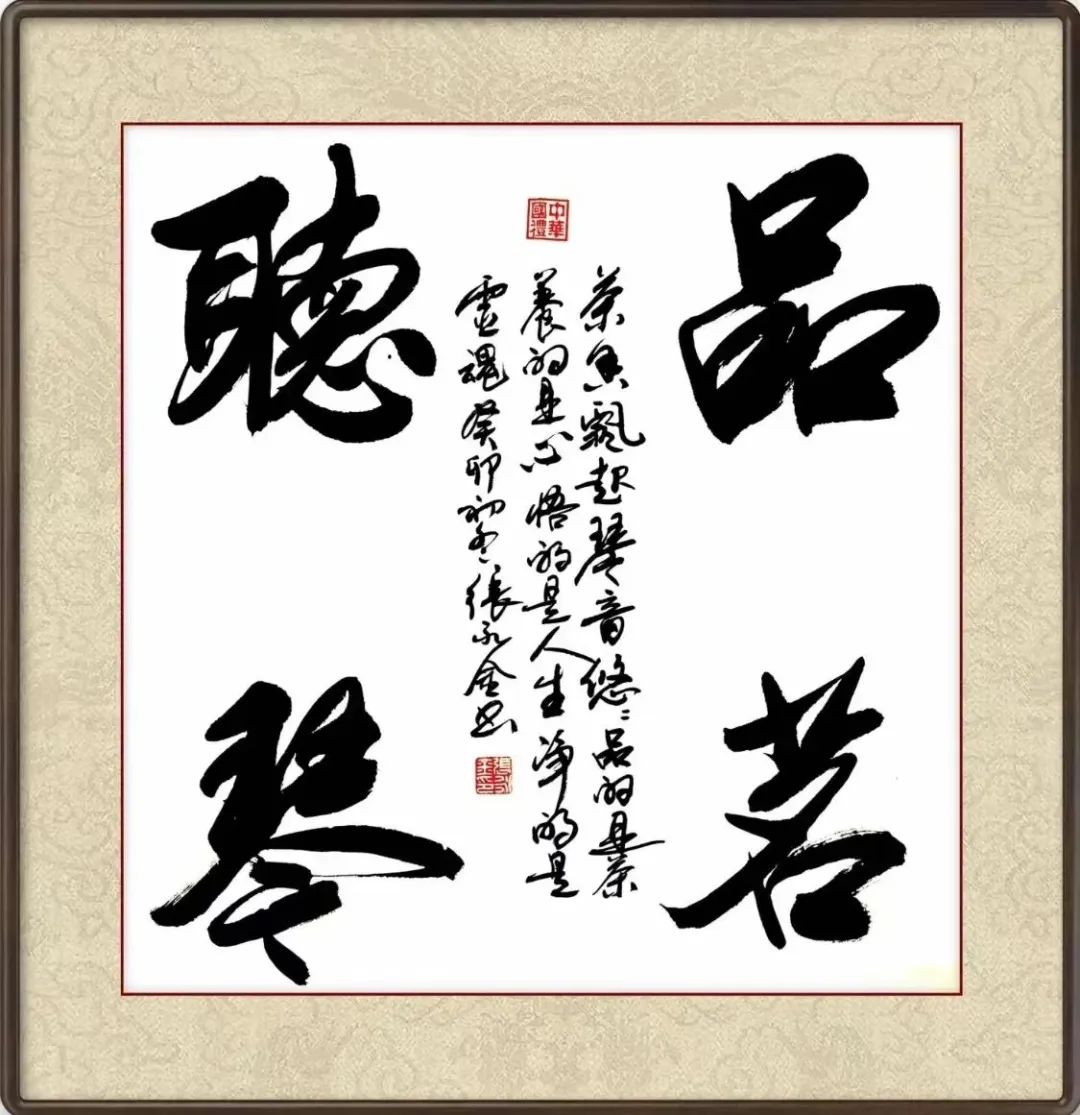 品茗
中華國禮
茶香飄起琴音悠〻品的是茶
養的是心悟的是人生淨的是
靈魂癸卯初冬張永金书
聽琴